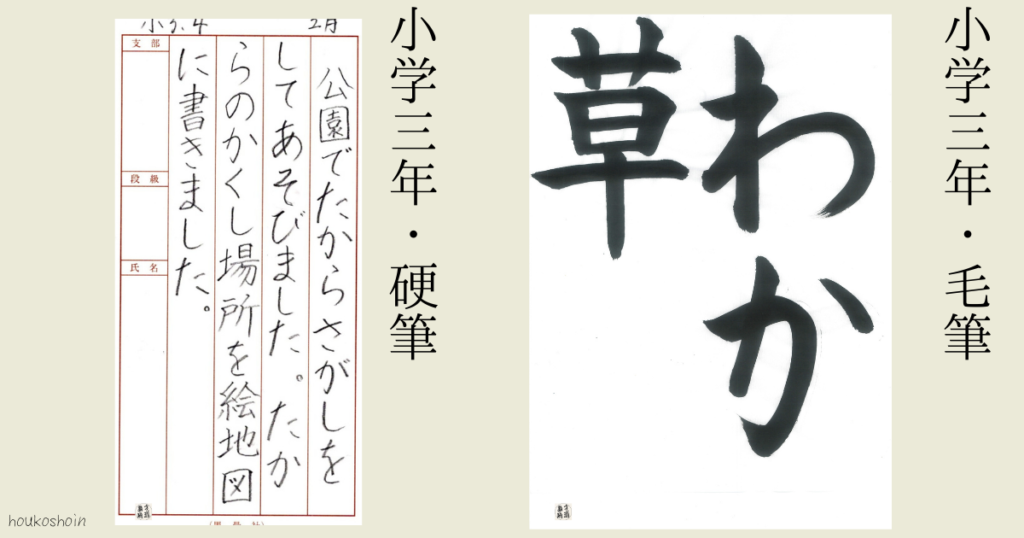 小学三年・毛筆
わか
草
小学三年・硬筆
2月
公園でたからさがしを
してあそびました。たか
らのかくし場所を絵地図
に書きました。
支部
段級
氏名
houkoshoin